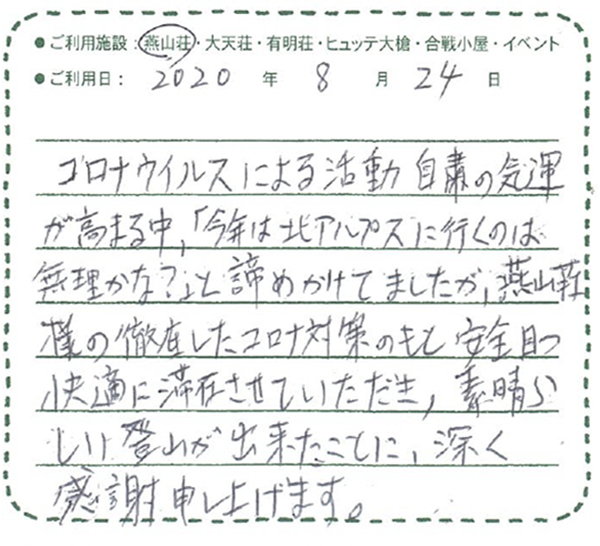 ●ご利用施設：燕山荘・大天荘・有明荘・ヒュッテ大槍・合戦小屋・イベント
●ご利用日： 2020 年 8 月 24 日
コロナウイルスによる活動自粛の気運
が高まる中、「今年は北アルプスに行くのは
無理かな？」と諦めかけてましたが、燕山荘
様の徹底したコロナ対策のもと安全且つ
快適に滞在させていただき、素晴ら
しい登山が出来たことに、深く
感謝申し上げます。